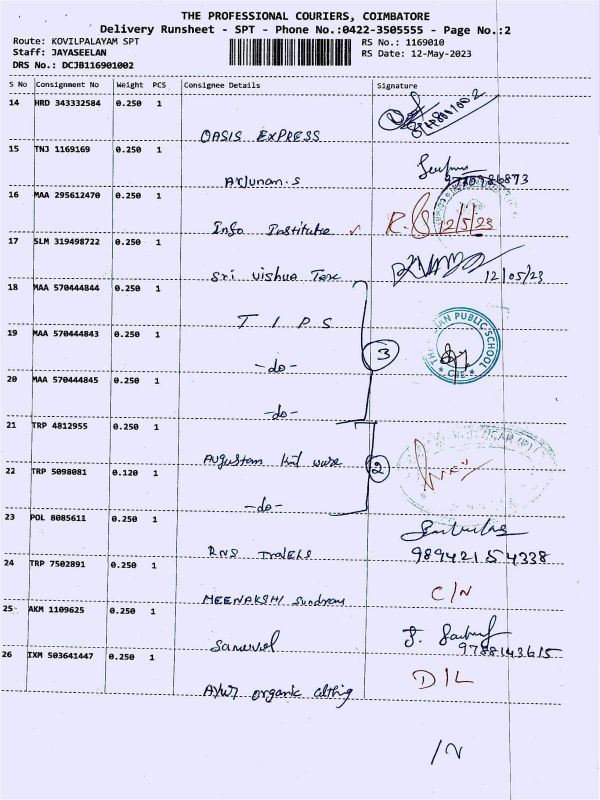 THE PROFESSIONAL COURIERS, COIMBATORE
Delivery Runsheet - SPT - Phone No.:0422-3505555 - Page No.:2
Route: KOVILPALAYAM SPT RS No.: 1169010
Staff: JAYASEELAN RS Date: 12-May-2023
DRS No.: DCJB116901002
S No Consignment No Weight PCS Consignee Details Signature
14 HRD 343332584 0.250 1
OASIS EXPRESS
15 TNJ 1169169 0.250 1
Arjunan.S
16 MAA 295612470 0.250 1
Info Institute 12/5/23
17 SLM 319498722 0.250 1
Sri Vishua Tex 12/05/23
18 MAA 570444844 0.250 1
T I P S
19 MAA 570444843 0.250 1 3
-do-
20 MAA 570444845 0.250 1
-do-
PUBLIC SCHOOL
CBE
21 TRP 4812955 0.250 1
Augustam knit wure
22 TRP 5098081 0.120 1 2
-do-
23 POL 8085611 0.250 1
RNS Travels 98942154338
24 TRP 7502891 0.250 1
MEENAKSHI Sundram C/N
25 AKM 1109625 0.250 1
Samuvel 9788143615
26 IXM 503641447 0.250 1
Ayur organic clthig D/L
/N